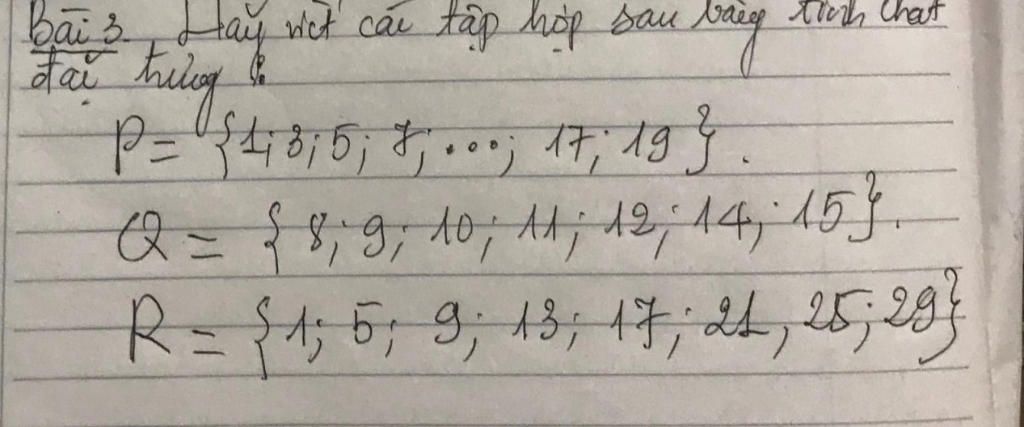 Bài 3. Hãy viết các tập hợp sau bằng tính chất
đặc trưng :
P = {1; 3; 5; 7; ...; 17; 19}.
Q = {8; 9; 10; 11; 12; 14; 15}.
R = {1; 5; 9; 13; 17; 21, 25; 29}